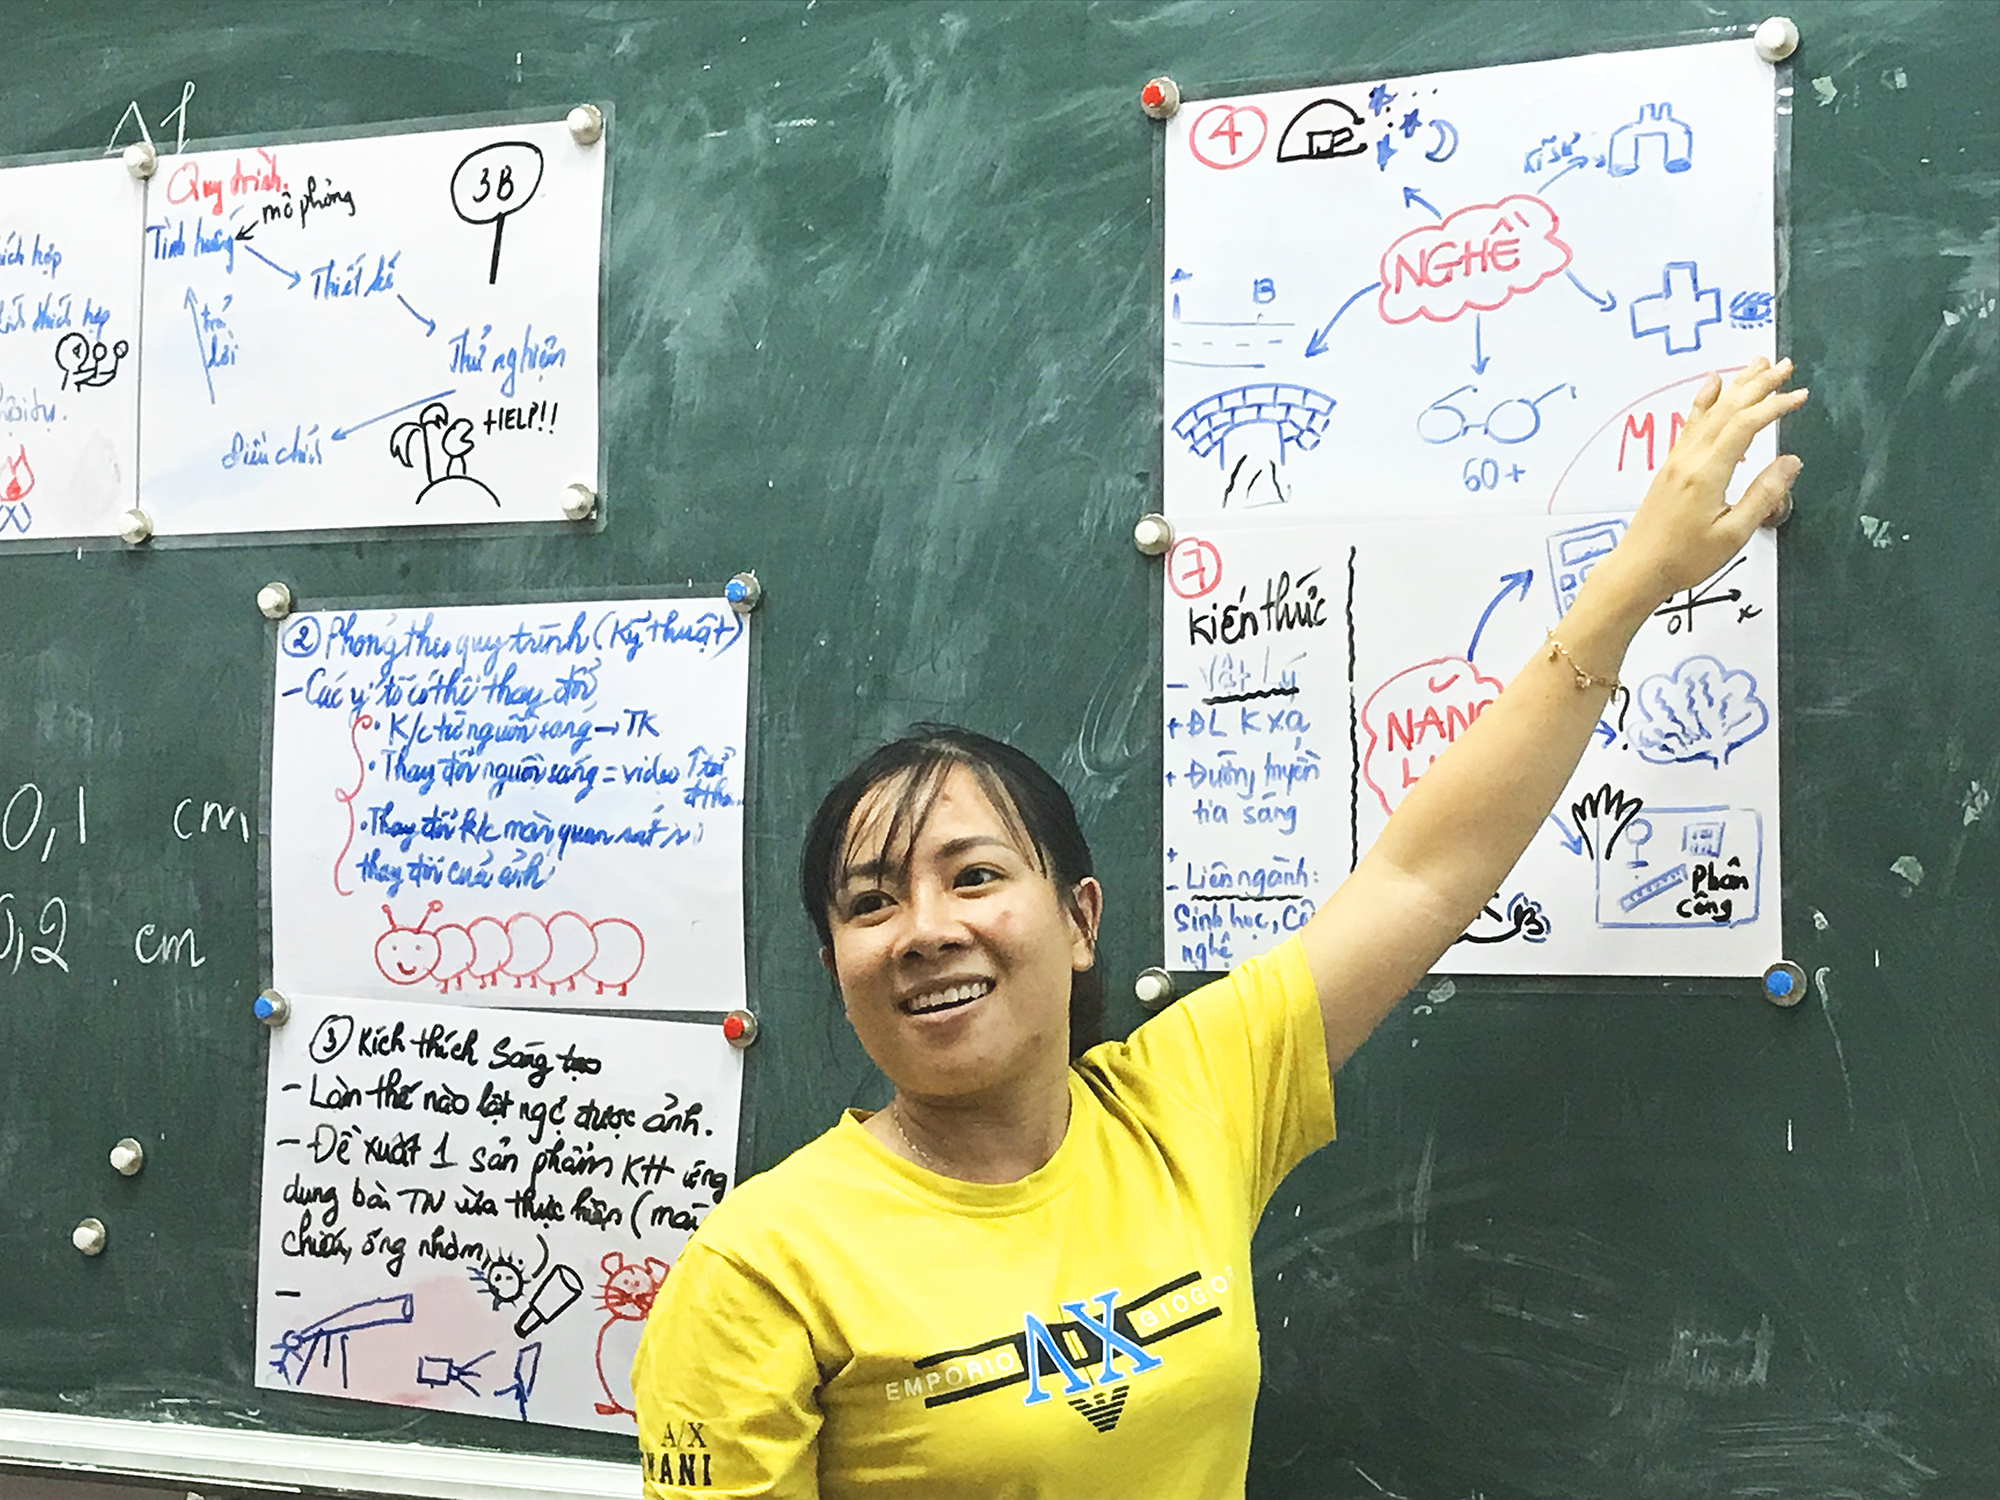 A1
Quy trình.
mô phỏng
3B
Tình huống
Thiết kế
Thử nghiệm
trả lời
Điều chỉnh
HELP!!
ích hợp
thích hợp
0,1 cm
0,2 cm
② Phỏng theo quy trình (Kỹ thuật)
- Các y/tố có thể thay đổi
• K/c từ nguồn sáng → TK
• Thay đổi nguồn sáng = video
• Thay đổi k/c màn quan sát
thay đổi của ảnh
③ Kích thích sáng tạo
- Làm thế nào lật ngược được ảnh.
- Đề xuất 1 sản phẩm KH ứng
dụng bài TN vừa thực hiện (
chiếu, ống nhòm, ...)
-
4
NGHỀ
B
60+
M
7
Kiến thức
- Vật Lý
+ ĐL K xạ
+ Đường truyền
tia sáng
+
- Liên ngành:
Sinh học, Cô
nghệ
NĂNG
L
0
x
?
Phân
công
EMPORIO AX GIOGIO
A/X
MANI